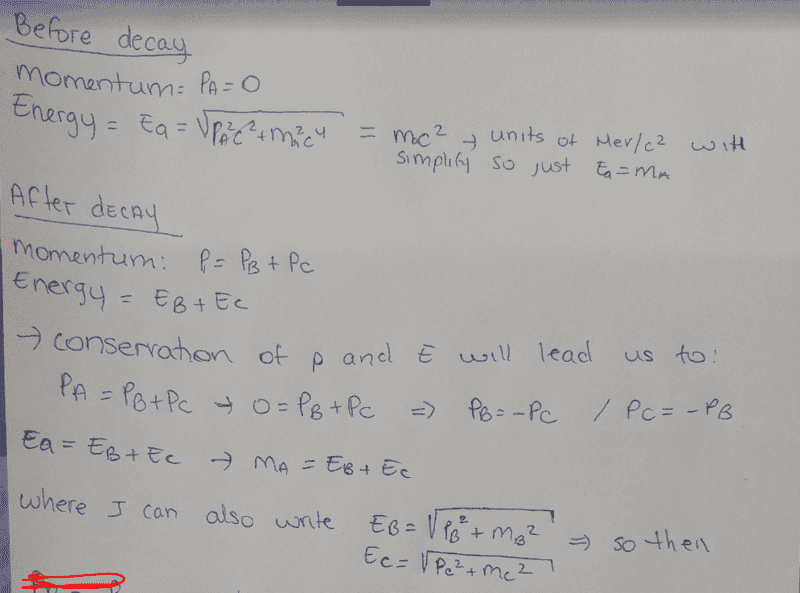 Before decay
momentum: PA = 0
Energy = Ea = √PA²c² + mA²c⁴ = mc² → units of Mev/c² will
simplify so just Ea = mA
After decay
momentum: P = PB + PC
Energy = EB + EC
→ conservation of p and E will lead us to:
PA = PB + PC → 0 = PB + PC => PB = -PC / PC = -PB
Ea = EB + EC → mA = EB + EC
where I can also write EB = √PB² + mB² => so then
EC = √PC² + mC²